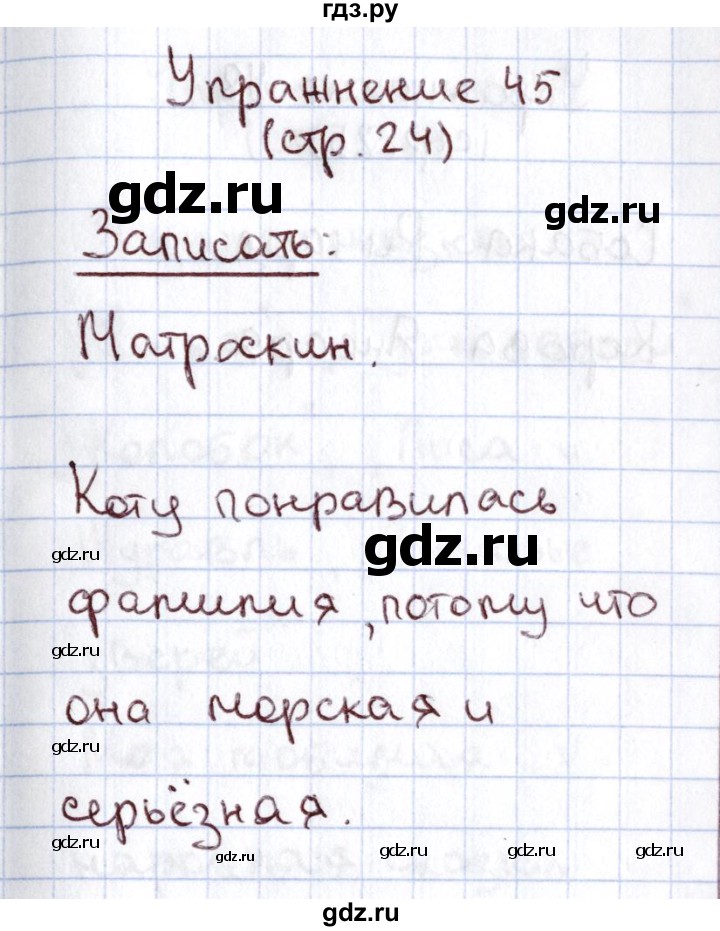 гдз.ру
Упражнение 45
(стр. 24)
gdz.ru
gdz.ru
Записать:
Матроскин.
Коту понравилась
gdz.ru
gdz.ru
фамилия, потому что
gdz.ru
она морская и
gdz.ru
серьёзная.
gdz.ru
gdz.ru
gdz.ru
gdz.ru
gdz.ru